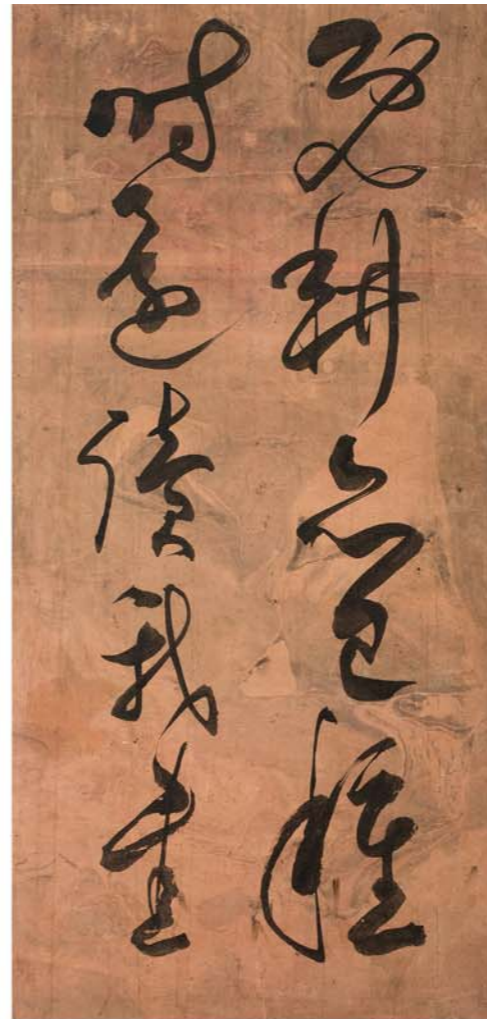 既耕亦已種
時還讀我書